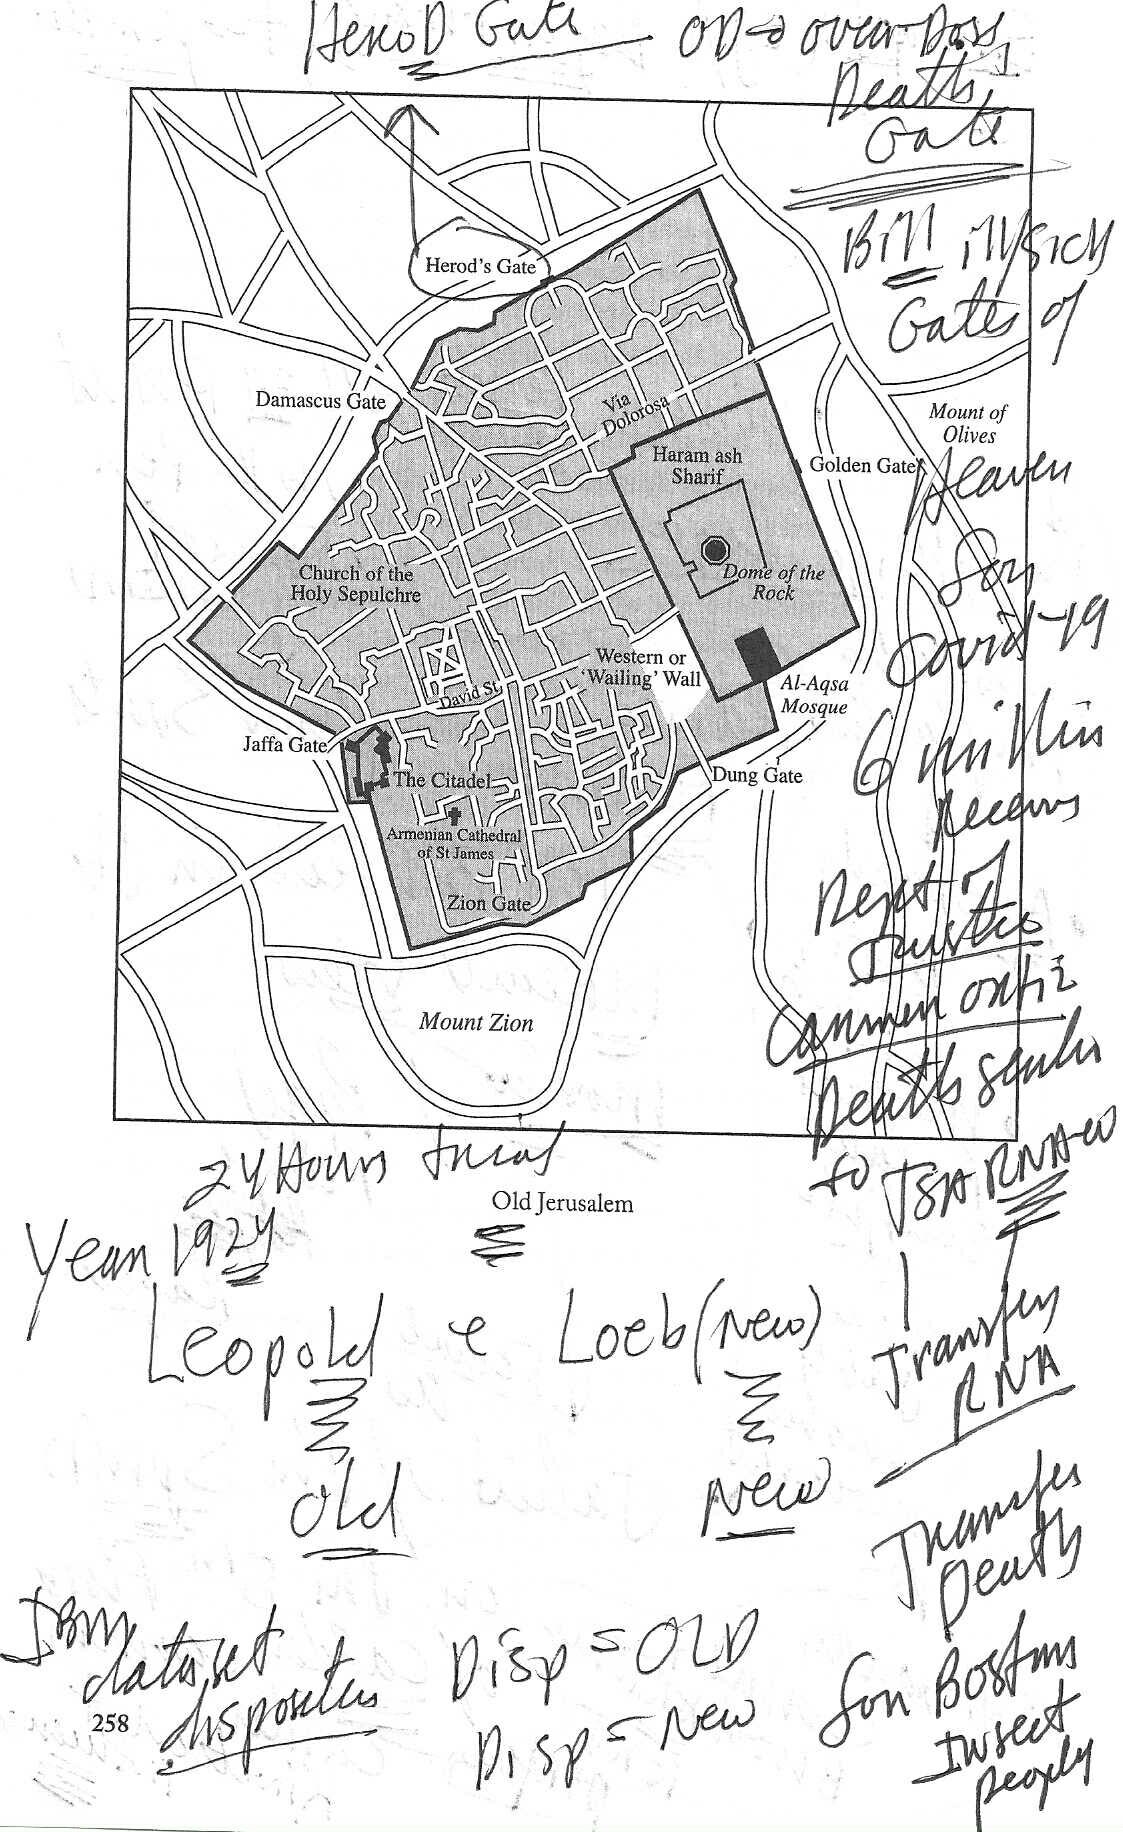 HeroD Gate OD → over-Doss,
Death
Gate
Bill ill/sick
Gates of
Heaven
for
Covid-19
6 million
Dept of
Justice
Carmen ortiz
Death
to TSA RNA
Transfer
RNA
Transfer
Death
for Bostons
Insect
people
Herod's Gate
Damascus Gate
Via
Dolorosa
Mount of
Olives
Haram ash
Sharif
Golden Gate
Church of the
Holy Sepulchre
Dome of the
Rock
Western or
'Wailing' Wall
David St.
Al-Aqsa
Mosque
Jaffa Gate
The Citadel
Dung Gate
Armenian Cathedral
of St James
Zion Gate
Mount Zion
24 Hours
Old Jerusalem
Year 1924
Leopold e Loeb (New)
Old New
IBM
dataset
Disp = OLD
Disp = New
258